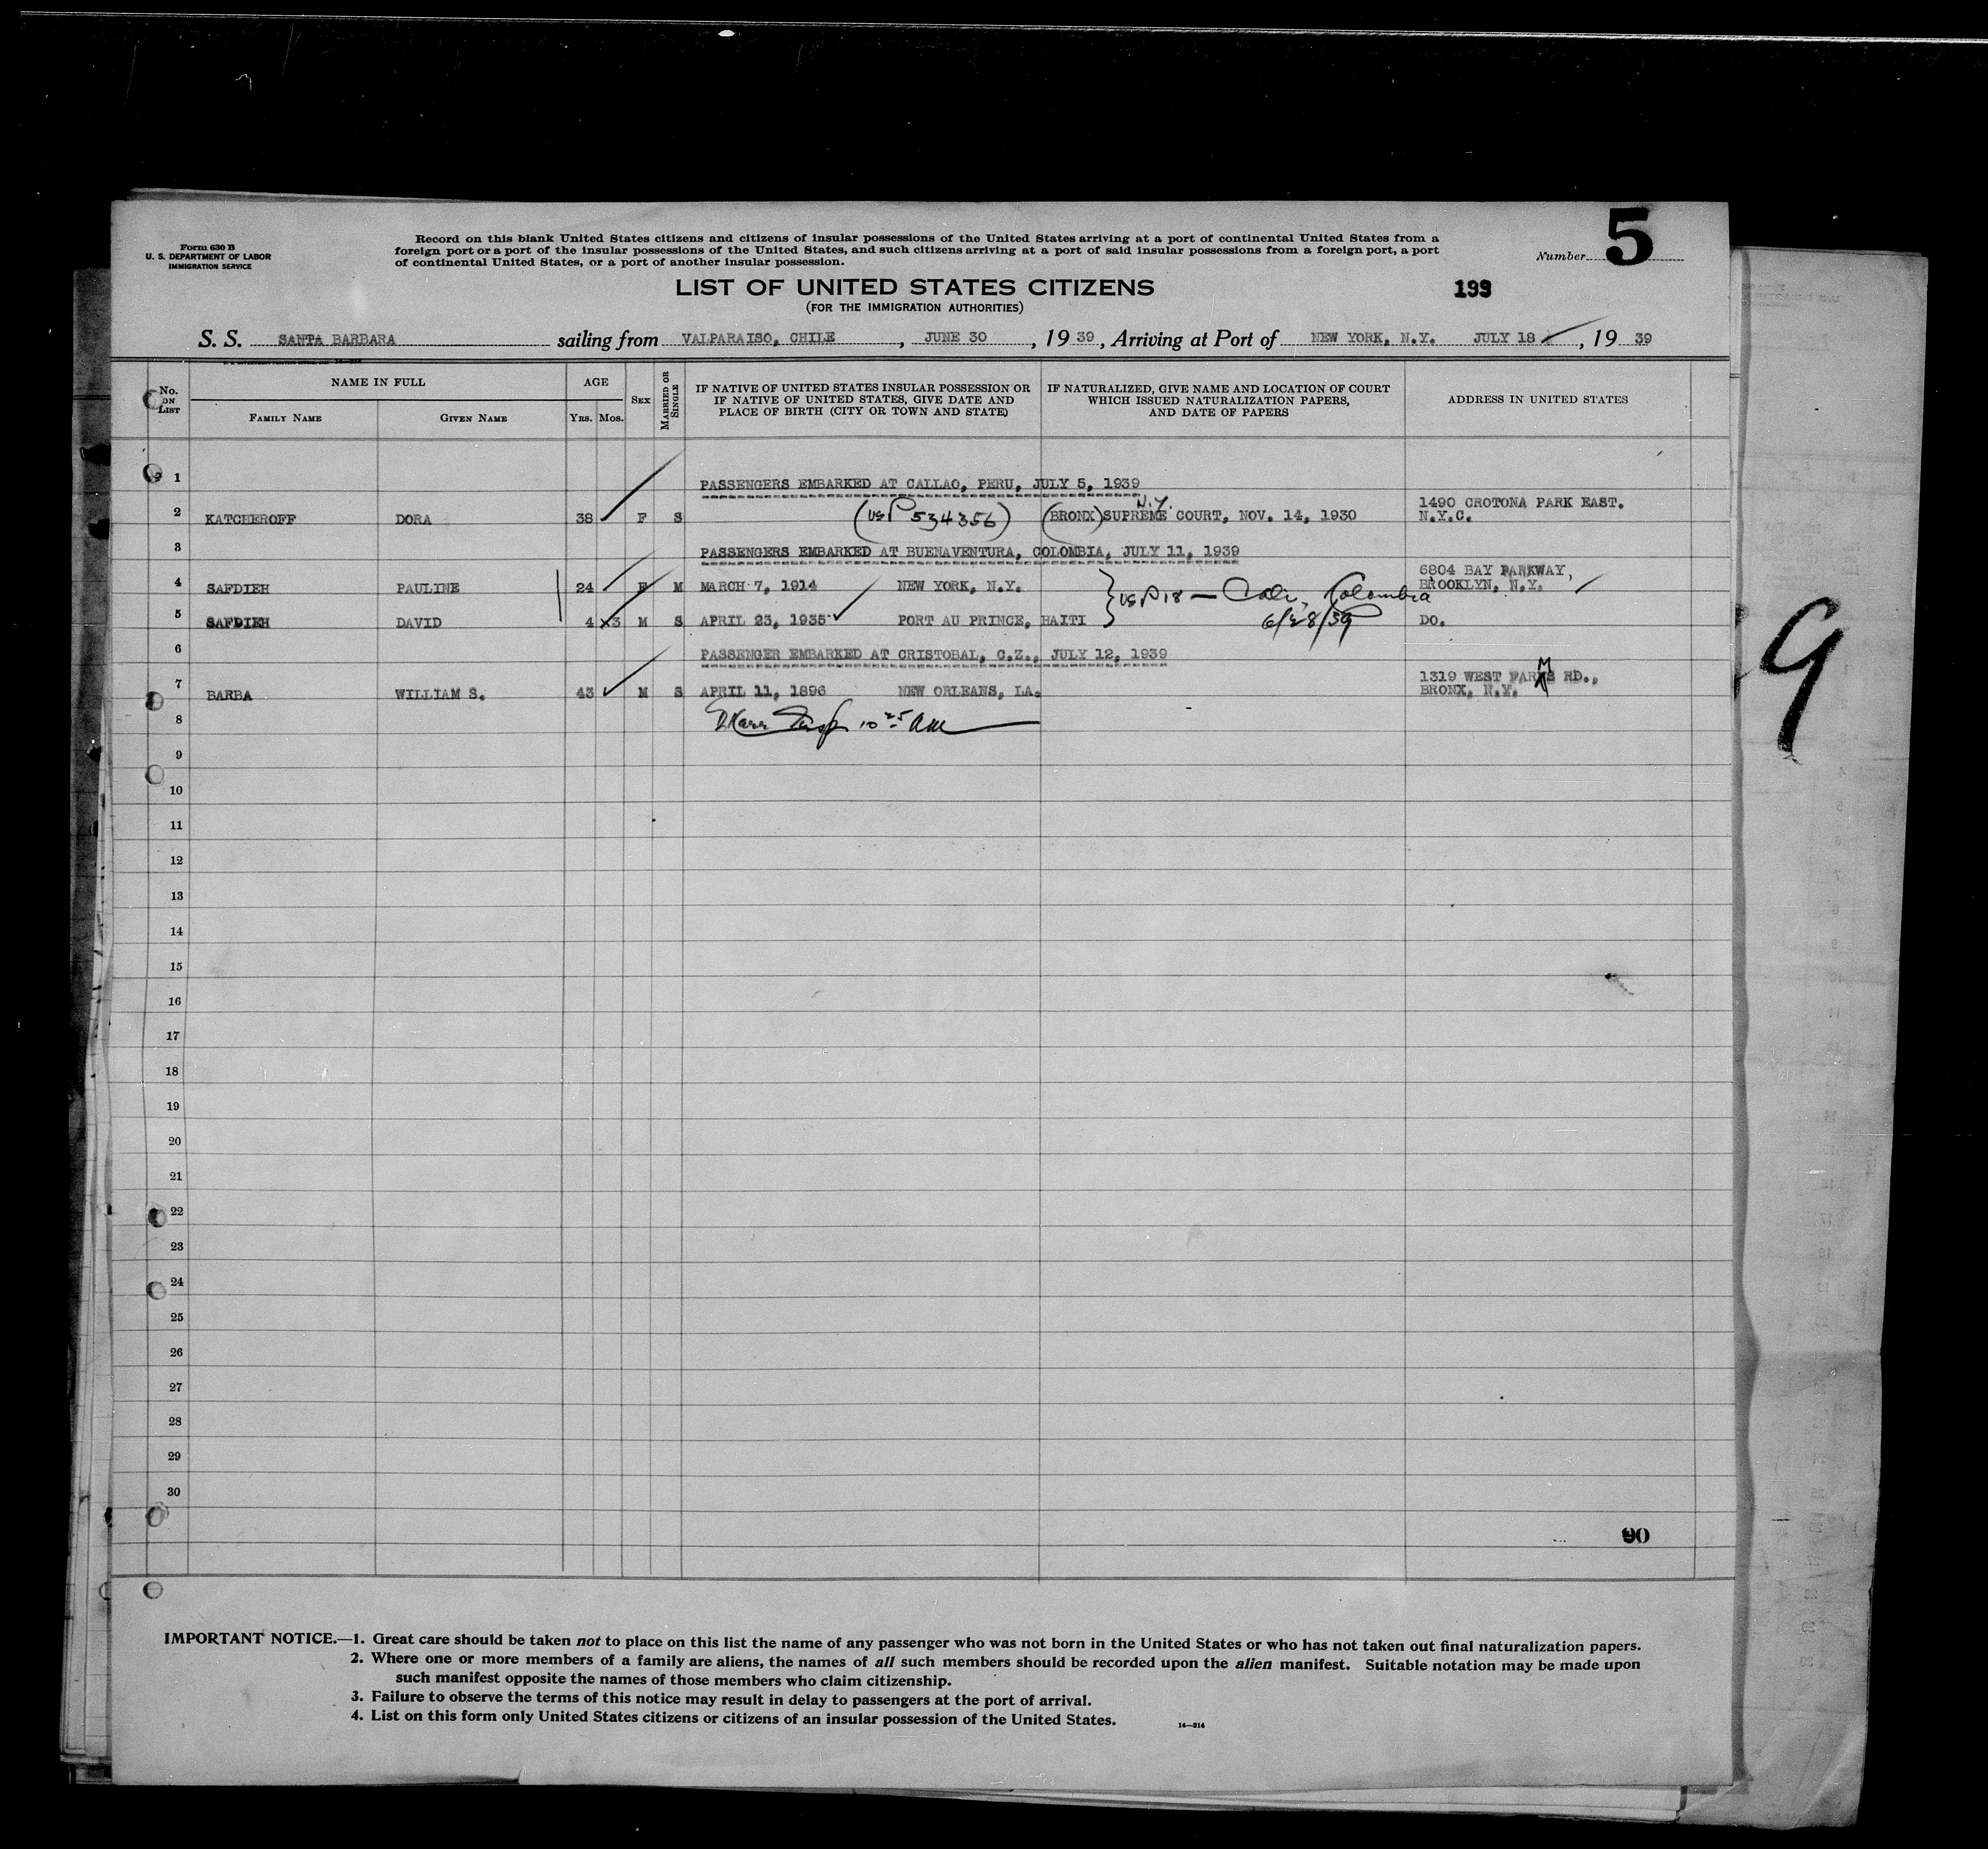 Form 630 B
U. S. DEPARTMENT OF LABOR
IMMIGRATION SERVICE
Record on this blank United States citizens and citizens of insular possessions of the United States arriving at a port of continental United States from a
foreign port or a port of the insular possessions of the United States, and such citizens arriving at a port of said insular possessions from a foreign port, a port
of continental United States, or a port of another insular possession.
Number 5
LIST OF UNITED STATES CITIZENS
(FOR THE IMMIGRATION AUTHORITIES)
199
S. S. SANTA BARBARA sailing from VALPARAISO, CHILE, JUNE 30, 19 39, Arriving at Port of NEW YORK, N.Y. JULY 18, 19 39
No. ON LIST
NAME IN FULL
FAMILY NAME
GIVEN NAME
AGE
YRS. MOS.
SEX
MARRIED OR SINGLE
IF NATIVE OF UNITED STATES INSULAR POSSESSION OR
IF NATIVE OF UNITED STATES, GIVE DATE AND
PLACE OF BIRTH (CITY OR TOWN AND STATE)
IF NATURALIZED, GIVE NAME AND LOCATION OF COURT
WHICH ISSUED NATURALIZATION PAPERS,
AND DATE OF PAPERS
ADDRESS IN UNITED STATES
1 PASSENGERS EMBARKED AT CALLAO, PERU, JULY 5, 1939
2 KATCHEROFF DORA 38 F S (US P 534356) (BRONX) N.Y. SUPREME COURT, NOV. 14, 1930 1490 CROTONA PARK EAST.
N.Y.C.
3 PASSENGERS EMBARKED AT BUENAVENTURA, COLOMBIA, JULY 11, 1939
4 SAFDIEH PAULINE 24 F M MARCH 7, 1914 NEW YORK, N.Y. 6804 BAY PARKWAY,
BROOKLYN, N.Y.
US P 18 — Cali, Colombia
6/28/39
5 SAFDIEH DAVID 4 3 M S APRIL 23, 1935 PORT AU PRINCE, HAITI DO.
6 PASSENGER EMBARKED AT CRISTOBAL, C.Z., JULY 12, 1939
7 BARBA WILLIAM S. 43 M S APRIL 11, 1896 NEW ORLEANS, LA. 1319 WEST FARMS RD.,
BRONX, N.Y.
8 Insp 10 25 AM
9
10
11
12
13
14
15
16
17
18
19
20
21
22
23
24
25
26
27
28
29
30
90
9
IMPORTANT NOTICE.—1. Great care should be taken not to place on this list the name of any passenger who was not born in the United States or who has not taken out final naturalization papers.
2. Where one or more members of a family are aliens, the names of all such members should be recorded upon the alien manifest. Suitable notation may be made upon
such manifest opposite the names of those members who claim citizenship.
3. Failure to observe the terms of this notice may result in delay to passengers at the port of arrival.
4. List on this form only United States citizens or citizens of an insular possession of the United States.
14—214